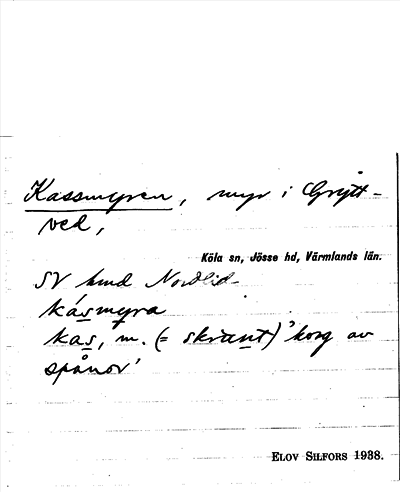 Kassmyren, myr i Grytt-
ved,
Köla sn, Jösse hd, Värmlands län.
SV hmd
kásmyra
kas, m. (= skrant) 'korg av
spånor'
ELOV SILFORS 1938.